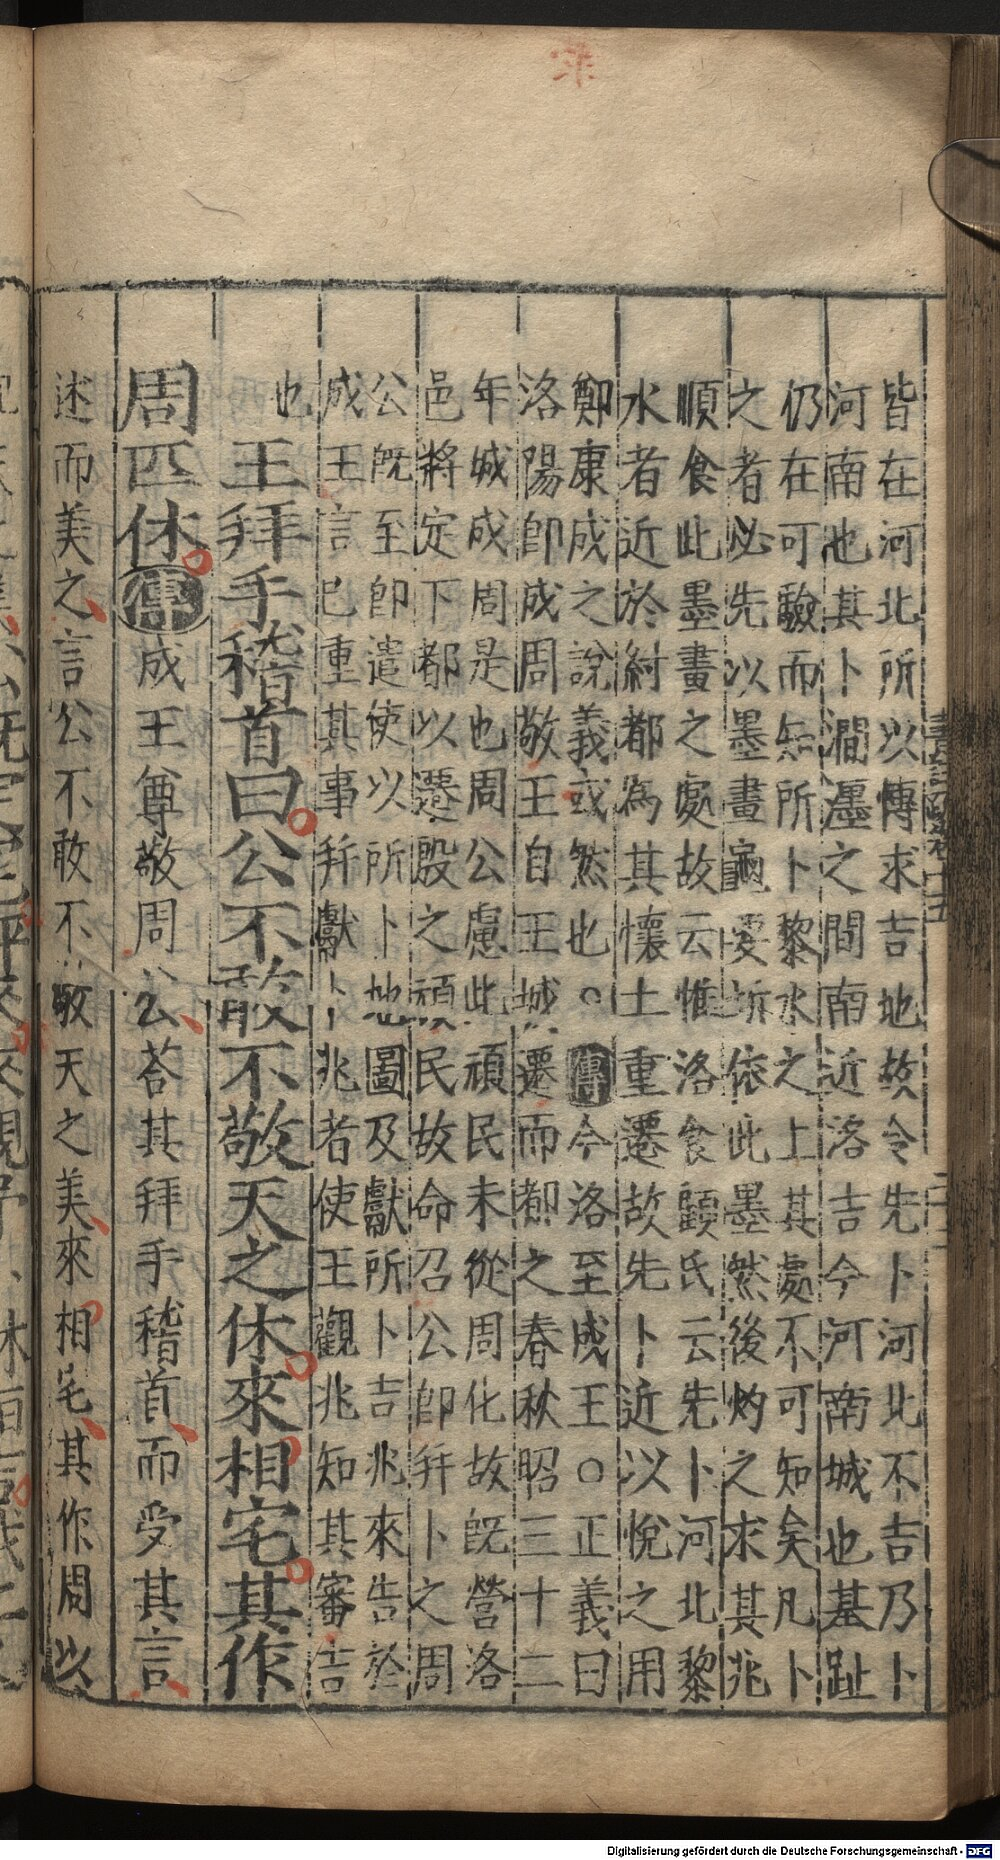 皆在河北所以博求吉地故令先卜河北不吉乃卜
河南也其卜澗瀍之間南近洛吉今河南城也基趾
仍在可驗而知所卜黎水之上其處不可知矣凡卜
之者必先以墨畫龜要坼依此墨然後灼之求其兆
順食此墨畫之處故云惟洛食顧氏云先卜河北黎
水者近於紂都為其懷土重遷故先卜近以悅之用
鄭康成之說義或然也○傳今洛至成王○正義曰
洛陽即成周敬王自王城遷而都之春秋昭三十二
年城成周是也周公慮此頑民未從周化故旣營洛
邑將定下都以遷殷之頑民故命召公即并卜之周
公旣至即遣使以所卜地圖及獻所卜吉兆來告於
成王言已重其事并獻卜兆者使王觀兆知其審吉
也
王拜手稽首曰公不敢不敬天之休來相宅其作
周匹休傳成王尊敬周公荅其拜手稽首而受其言
述而美之言公不敢不敬天之美來相宅其作周以
Digitalisierung gefördert durch die Deutsche Forschungsgemeinschaft - DFG